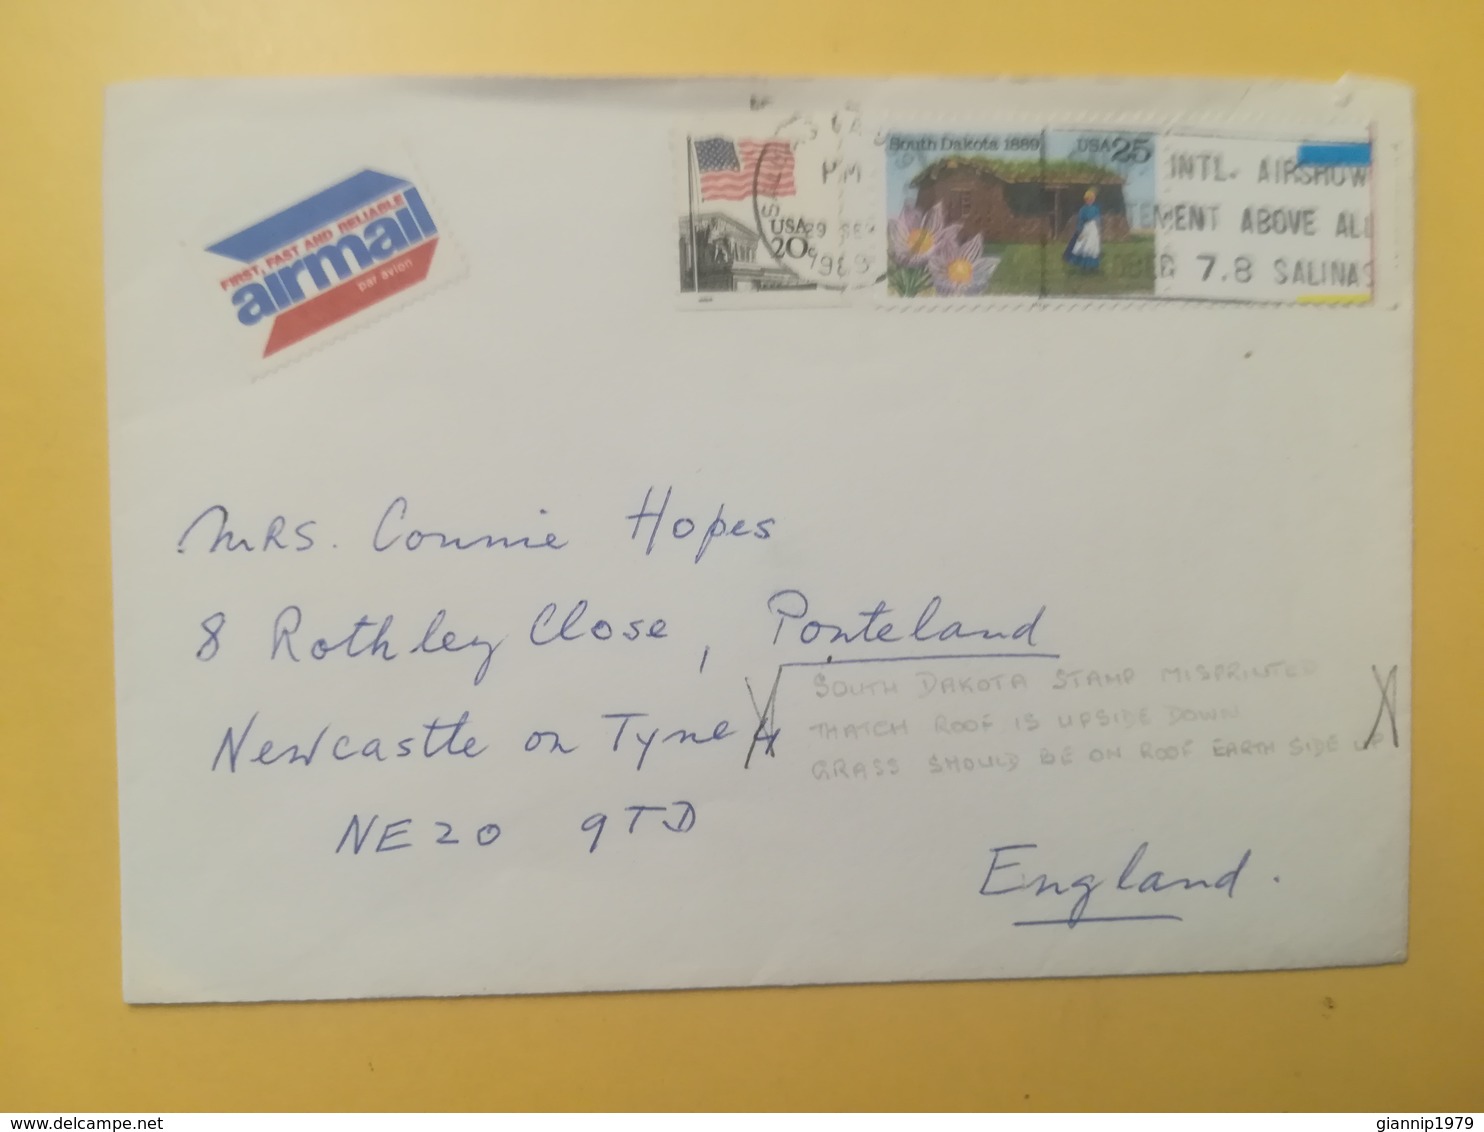 FIRST, FAST AND RELIABLE
airmail
par avion
USA
20c
PM
29 SEP
1989
South Dakota 1889
USA 25
INTL. AIRSHOW
TEMENT ABOVE ALL
7.8 SALINAS
MRS. Connie Hopes
8 Rothley Close, Ponteland
Newcastle on Tyne
NE20 9TD
England.
SOUTH DAKOTA STAMP MISPRINTED
THATCH ROOF IS UPSIDE DOWN
GRASS SHOULD BE ON ROOF EARTH SIDE UP
www.delcampe.net
giannip1979